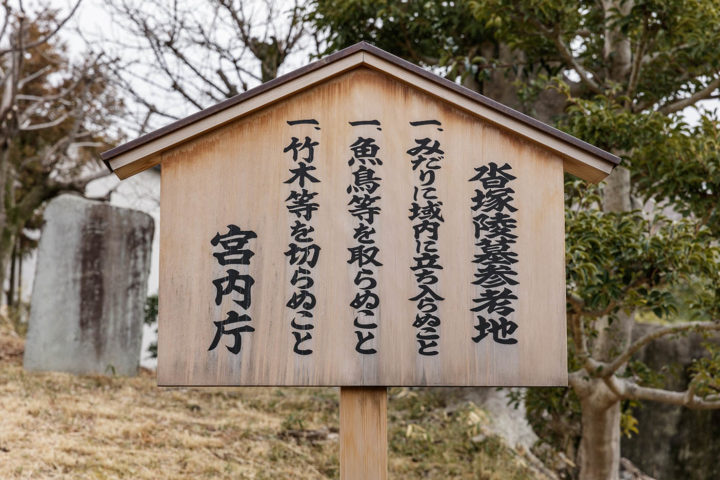 沓塚陵墓参考地
一、みだりに域内に立ち入らぬこと
一、魚鳥等を取らぬこと
一、竹木等を切らぬこと
宮内庁